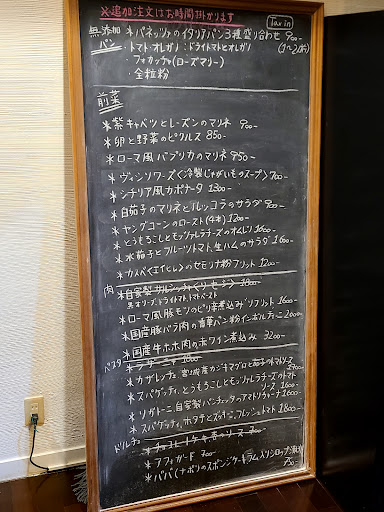 ※追加注文はお時間掛かります
Tax in
無添加パン
＊パネッツァのイタリアパン3種盛り合わせ 900-
(1〜2名)
・トマト・オレガノ：ドライトマトとオレガノ
・フォカッチャ(ローズマリー)
・全粒粉
前菜
＊紫キャベツとレーズンのマリネ 700-
＊卵と野菜のピクルス 850-
＊ローマ風パプリカのマリネ 950-
＊ヴィシソワーズ＜冷製じゃがいものスープ＞ 700-
＊シチリア風カポナータ 1300-
＊白茄子のマリネとルッコラのサラダ 900-
＊ヤングコーンのロースト(4本) 1200-
＊とうもろこしとモッツァレラチーズのオムレツ 1600-
＊水茄子とフルーツトマト、生ハムのサラダ 1600-
＊カスベ＜エイヒレ＞のセモリナ粉フリット 1200-
肉
＊自家製サルシッチャ 1800-
黒オリーブ、ドライトマト、トマトペースト
＊ローマ風豚モツのピリ辛煮込み"リフリット" 1600-
＊国産豚バラ肉の香草パン粉インボルティーニ 2000-
＊国産牛ホホ肉の赤ワイン煮込み 3200-
パスタ
＊ラザーニャ 1800-
＊カサレッチェ、宮城産カジキマグロと茄子のトマトソース 1700-
＊スパゲッティ、とうもろこしとモッツァレラチーズのトマトソース 1600-
＊リガトーニ、自家製パンチェッタのアマトリチャーナ 1600-
＊スパゲッティ、ホタテとズッキーニ、フレッシュトマト 1800-
ドルチェ
＊チョコレートケーキ 700-
＊アフォガード 700-
＊ババ(ナポリのスポンジケーキ ラム入りシロップ 750-